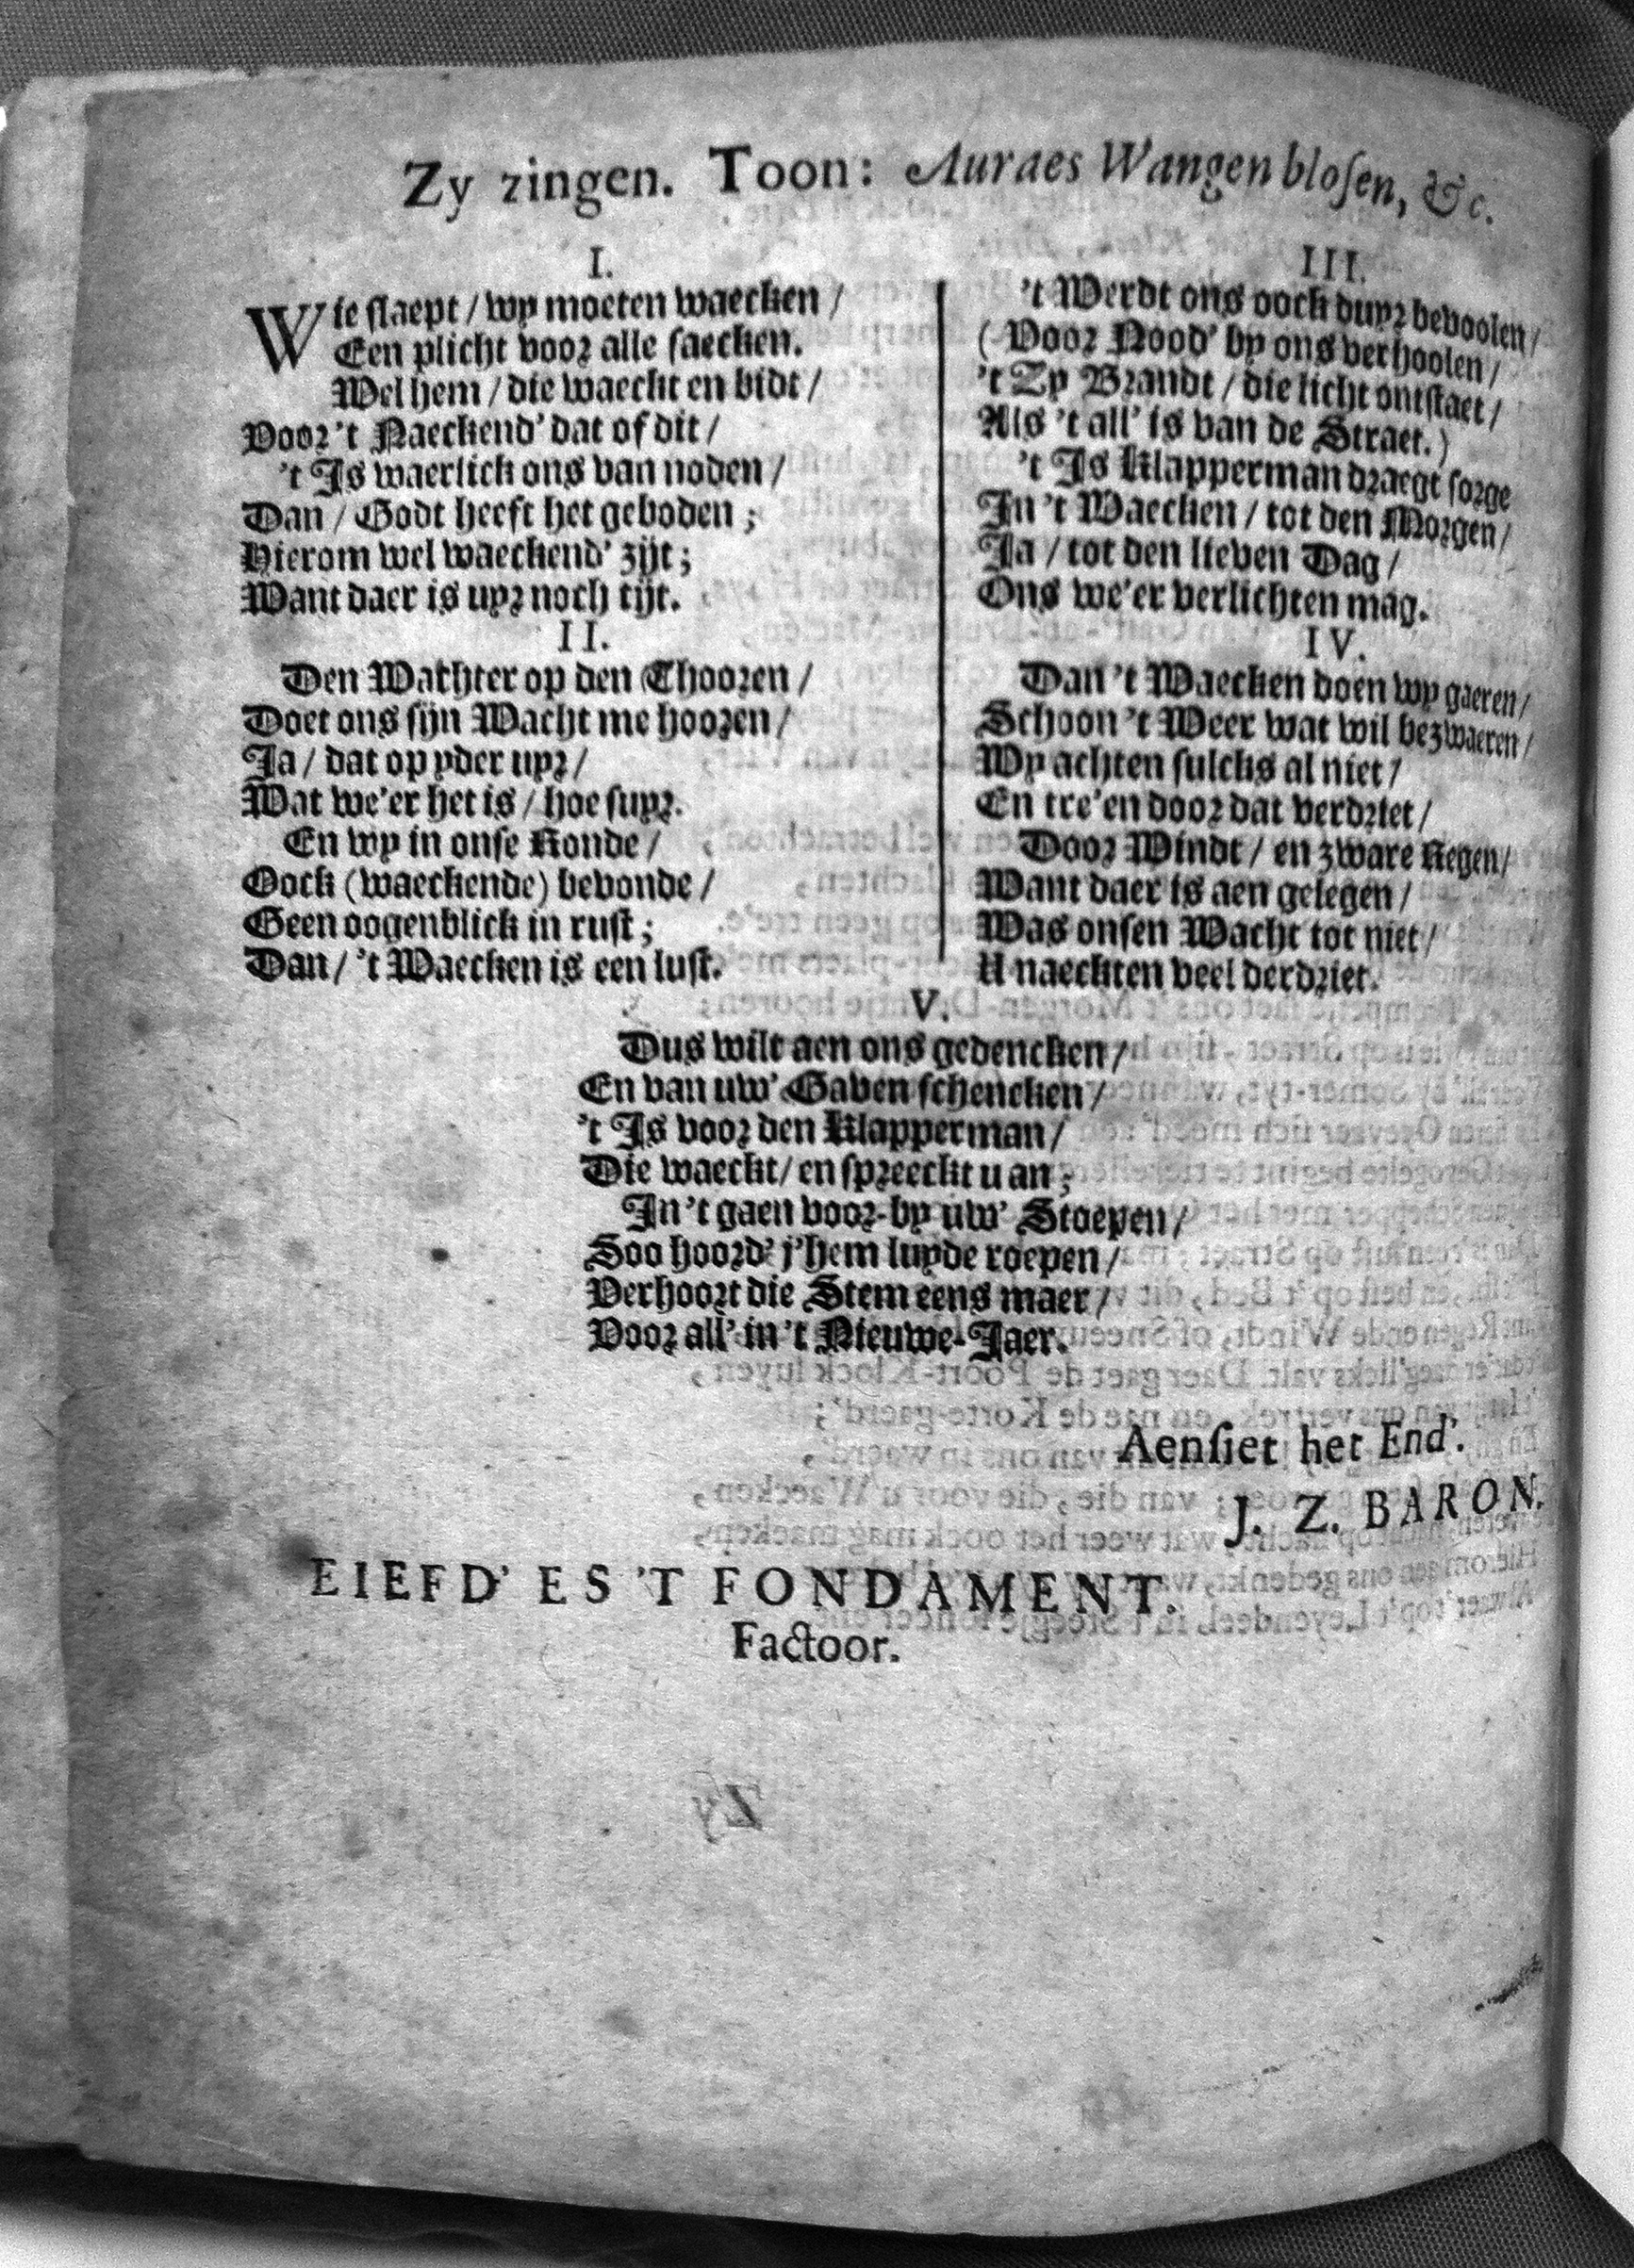 Zy zingen. Toon: Auraes Wangen blosen, &c.
I.
Wie slaept / wy moeten waecken /
Een plicht voor alle saecken.
Wel hem / die waeckt en bidt /
Voor 't Naeckend' dat of dit /
't Is waerlick ons van noden /
Dan / Godt heeft het geboden ;
Hierom wel waeckend' zijt ;
Want daer is uyr noch tijt.
II.
Den Wathter op den Thooren /
Doet ons sijn Wacht me hooren /
Ja / dat op yder uyr /
Wat we'er het is / hoe suyr.
En wy in onse Ronde /
Oock (waeckende) bevonde /
Geen oogenblick in rust ;
Dan / 't Waecken is een lust.
III.
't Werdt ons oock duyr bevoolen /
( Voor Nood' by ons verhoolen /
't Zy Brandt / die licht ontstaet /
Als 't all' is van de Straet.)
't Is Klapperman draegt sorge
In 't Waecken / tot den Morgen /
Ja / tot den lieven Dag /
Ons we'er verlichten mag.
IV.
Dan 't Waecken doen wy gaeren /
Schoon 't Weer wat wil bezwaeren /
Wy achten sulcks al niet /
En tre'en door dat verdriet /
Door Windt / en zware Regen /
Want daer is aen gelegen /
Was onsen Wacht tot niet /
U naeckten veel derdriet.
V.
Dus wilt aen ons gedencken /
En van uw' Gaven schencken /
't Is voor den Klapperman /
Die waeckt / en spreeckt u an ;
In 't gaen voor-by uw' Stoepen /
Soo hoord' j'hem luyde roepen /
Verhoort die Stem eens maer /
Voor all' in 't Nieuwe-Jaer.
Aensiet het End'.
J. Z. BARON.
EIEFD' ES 'T FONDAMENT.
Factoor.